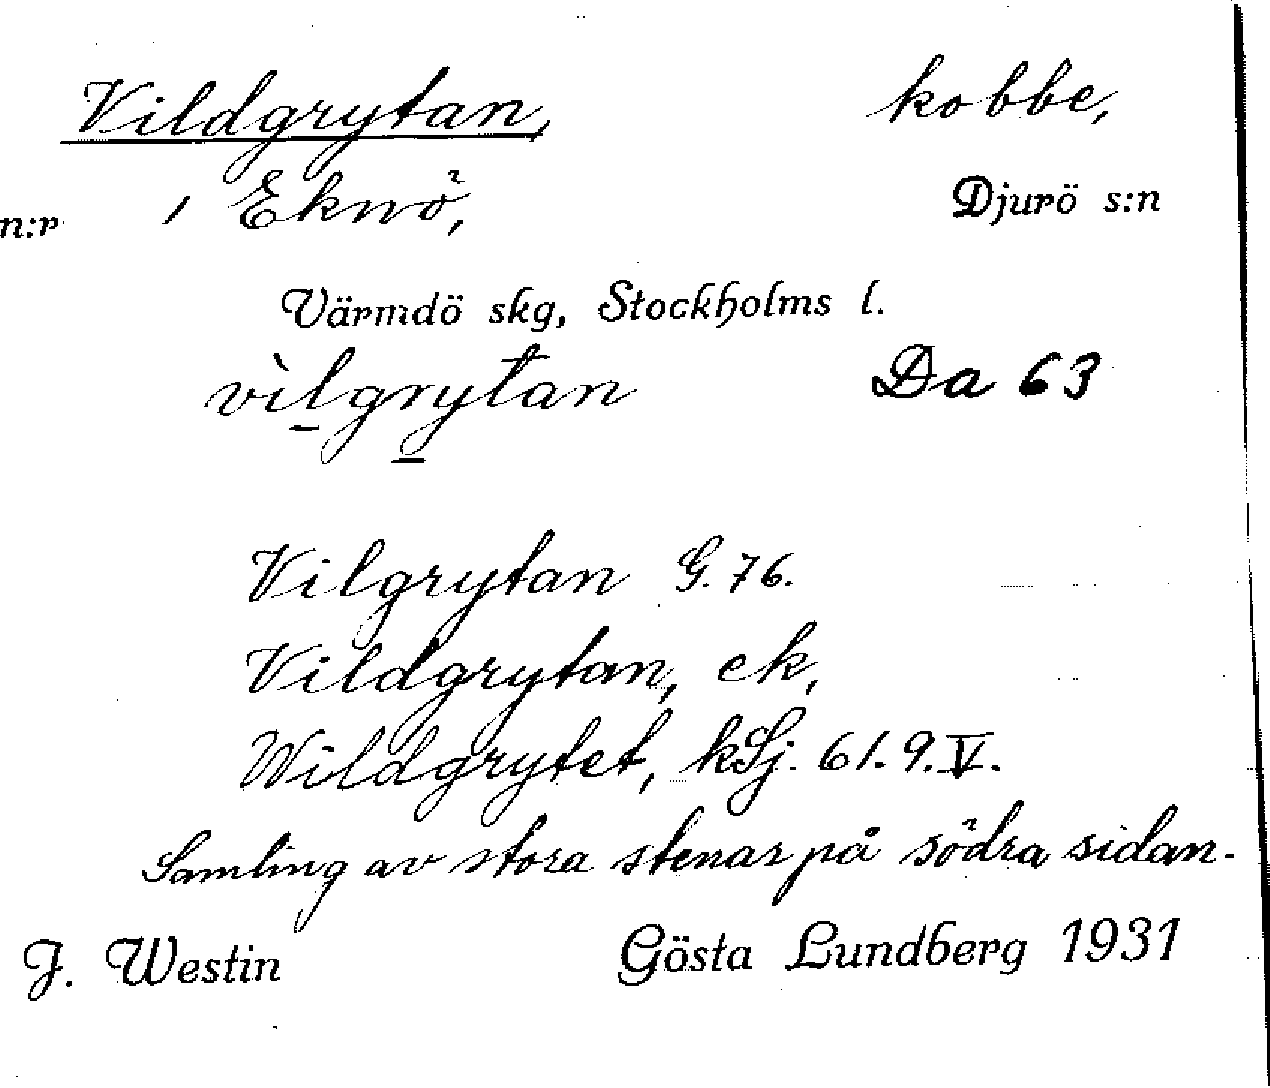 Vildgrytan, kobbe,
n:r 1 Eknö, Djurö s:n
Värmdö skg, Stockholms l.
vìlgrytan Da 63
Vilgrytan G. 76.
Vildgrytan, ek,
Wildgrytet, kSj. 61. 9. V.
Samling av stora stenar på södra sidan.
J. Westin Gösta Lundberg 1931